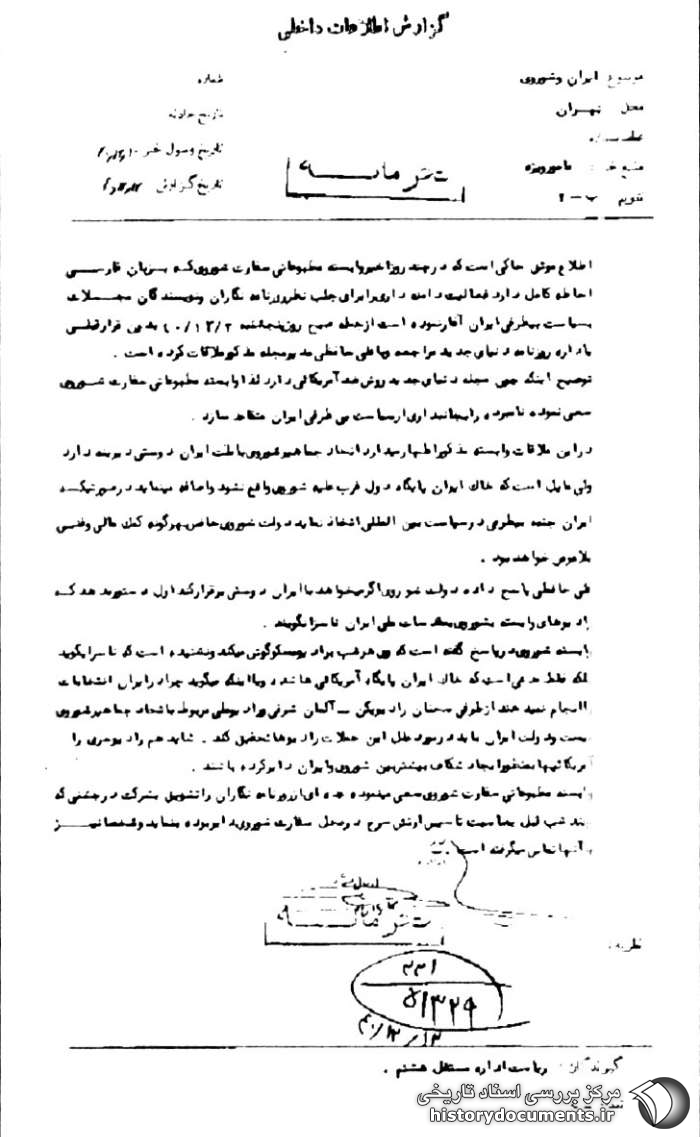 گزارش اطلاعات داخلی
موضوع ایران وشوروی
شماره
محل تهران
تاریخ حادثه
تاریخ وصول خبر
منبع خبر: مامور ویژه
تاریخ گزارش
تقویم ب – ۲
محرمانه
اطلاع موثق حاکی است که در چند روز اخیر وابسته مطبوعاتی سفارت شوروی که بزبان فارسی
احاطه کامل دارد فعالیت دامنه داری را برای جلب نظر روزنامه نگاران ونویسندگان مجلات
بسیاست بیطرفی ایران آغاز نموده است از جمله صبح روز پنجشنبه ۴۰/۱۲/۳ بدون قرار قبلی
باداره روزنامه دنیای جدید مراجعه وباعلی حافظی مدیر مجله مذکور ملاقات کرده است .
توضیح اینکه چون مجله دنیای جدید روش ضد آمریکائی دارد لذا وابسته مطبوعاتی سفارت شوروی
سعی نموده نامبرده را بجانبداری از سیاست بی طرفی ایران متقاعد سازد .
در این ملاقات وابسته مذکور اظهار میدارد اتحاد جماهیر شوروی با ملت ایران دوستی دیرینه دارد
ولی مایل است که خاک ایران پایگاه دول غرب علیه شوروی واقع نشود واضافه مینماید در صورتیکه
ایران جنبه بیطرفی در سیاست بین المللی اتخاذ نماید دولت شوروی حاضر بهرگونه کمک مالی وفنی
بلاعوض خواهد بود .
علی حافظی پاسخ داده دولت شوروی اگر میخواهد با ایران دوستی برقرار کند اول دستور بدهد که
رادیوهای وابسته بشوروی بمقدسات ملی ایران ناسزا نگویند .
وابسته شوروی در پاسخ گفته است که وی هر شب برادیو مسکو گوش میکند ونشنیده است که ناسزا بگوید
بلکه فقط مدعی است که خاک ایران پایگاه آمریکائی هاشده ویا اینکه میگوید چرا در ایران انتخابات
را انجام نمیدهند از طرفی سخنان رادیو پیکن – آلمان شرقی ورادیو ملی مربوط باتحاد جماهیر شوروی
نیست ودولت ایران باید در مورد علل این حملات رادیوها تحقیق کند . شاید هم رادیو ملی را
آمریکائیها بمنظور ایجاد شکاف بیشتر بین شوروی وایران دایر کرده باشند .
وابسته مطبوعاتی سفارت شوروی سعی مینموده عده ای از روزنامه نگاران را تشویق بشرکت در جشنی که
چند شب قبل بمناسبت تاسیس ارتش سرخ در محل سفارت شوروی دایر بوده بنماید وشخصا نیز
با آنها تماس میگرفته است .
محرمانه
نظریه :
۲۳۱
۵۱۳۲۹
۴۰/۱۲/۱۳
گیرندگان : ریاست اداره مستقل هشتم .
مرکز بررسی اسناد تاریخی
historydocuments.ir